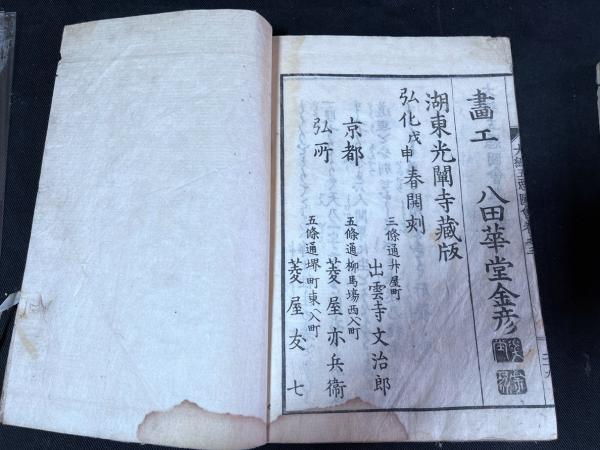 畫工　八田華堂金彦
湖東光闡寺藏版
弘化戊申春開刻
京都
弘所
三條通舛屋町
出雲寺文治郎
五條通柳馬場西入町
菱屋亦兵衞
五條通堺町東へ入町
菱屋友七